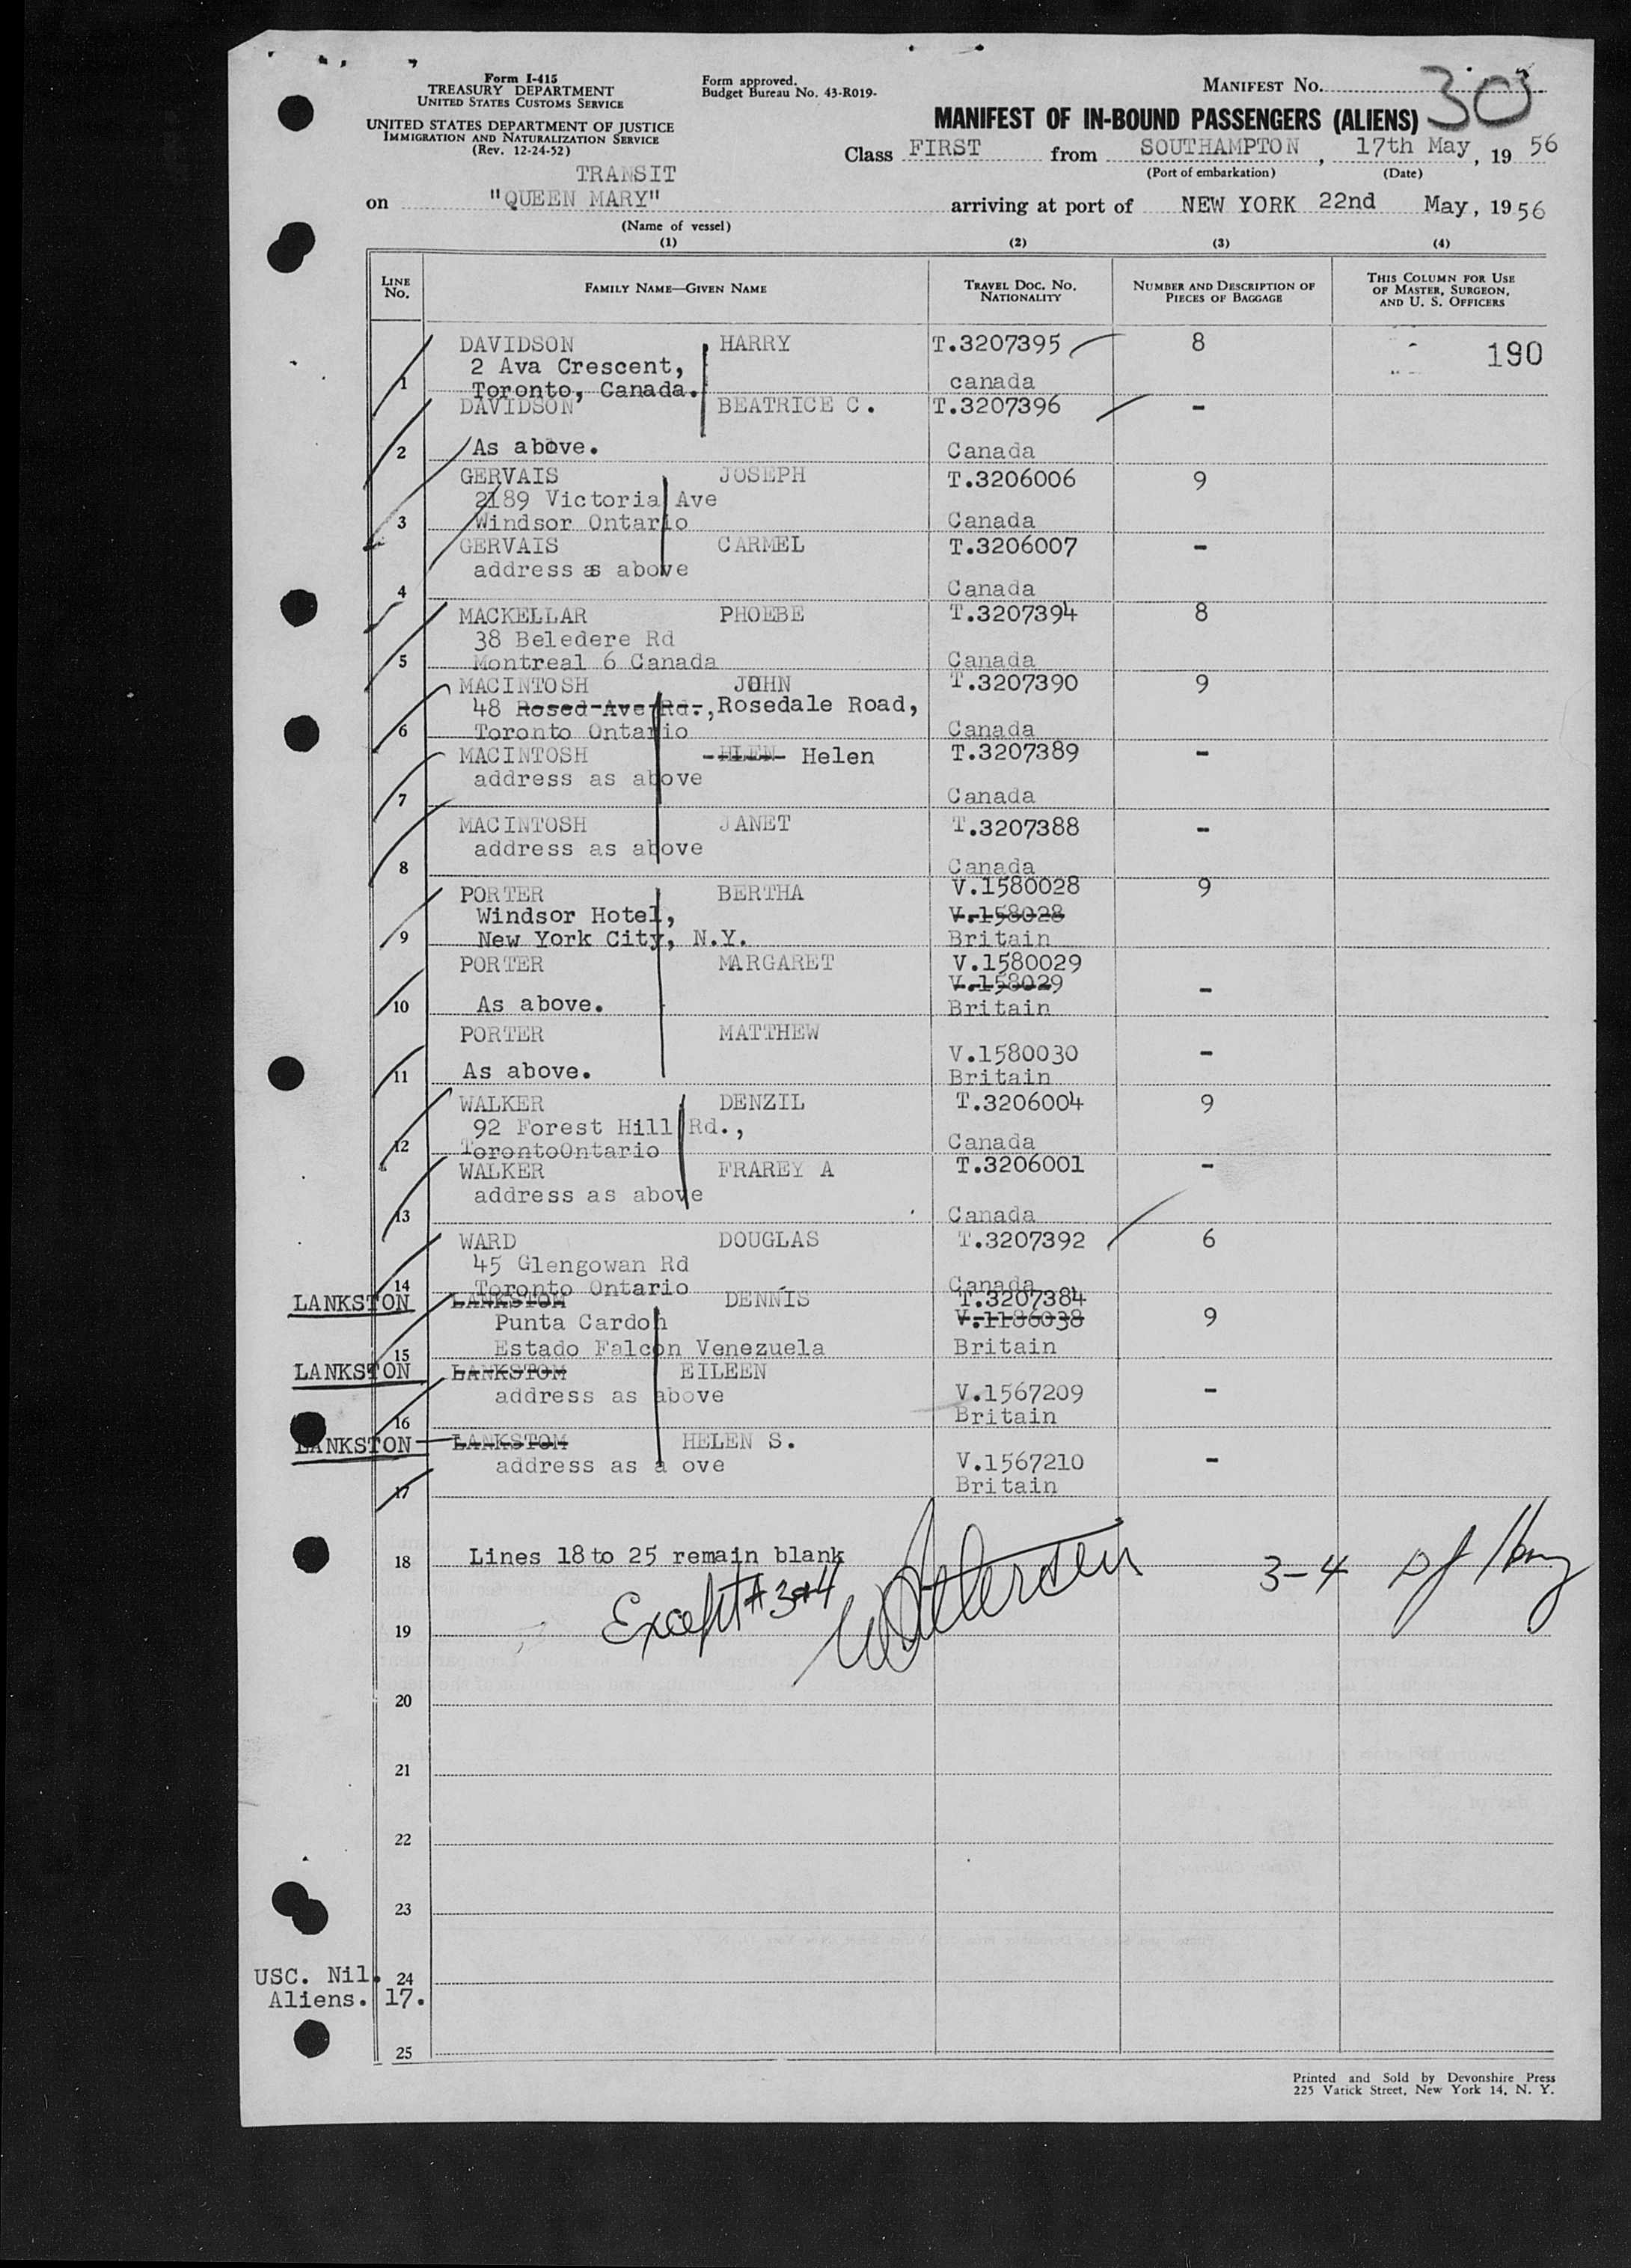 Form I-415
TREASURY DEPARTMENT
UNITED STATES CUSTOMS SERVICE
UNITED STATES DEPARTMENT OF JUSTICE
IMMIGRATION AND NATURALIZATION SERVICE
(Rev. 12-24-52)
Form approved.
Budget Bureau No. 43-R019-
MANIFEST NO. 30
MANIFEST OF IN-BOUND PASSENGERS (ALIENS)
Class FIRST from SOUTHAMPTON, 17th May, 19 56
(Port of embarkation) (Date)
TRANSIT
on "QUEEN MARY" arriving at port of NEW YORK 22nd May, 1956
(Name of vessel)
(1) (2) (3) (4)
LINE No. FAMILY NAME—GIVEN NAME TRAVEL DOC. NO. NATIONALITY NUMBER AND DESCRIPTION OF PIECES OF BAGGAGE THIS COLUMN FOR USE OF MASTER, SURGEON, AND U. S. OFFICERS
DAVIDSON HARRY T.3207395 8 190
2 Ava Crescent,
1 Toronto, Canada. canada
DAVIDSON BEATRICE C. T.3207396 -
2 As above. Canada
GERVAIS JOSEPH T.3206006 9
2189 Victoria Ave
3 Windsor Ontario Canada
GERVAIS CARMEL T.3206007 -
address as above
4 Canada
MACKELLAR PHOEBE T.3207394 8
38 Beledere Rd
5 Montreal 6 Canada Canada
MACINTOSH JOHN T.3207390 9
48 Rosed Ave Rd., Rosedale Road,
6 Toronto Ontario Canada
MACINTOSH HLEN Helen T.3207389 -
address as above
7 Canada
MACINTOSH JANET T.3207388 -
address as above
8 Canada
PORTER BERTHA V.1580028 9
Windsor Hotel, V.158028
9 New York City, N.Y. Britain
PORTER MARGARET V.1580029
V.158029 -
10 As above. Britain
PORTER MATTHEW
V.1580030 -
11 As above. Britain
WALKER DENZIL T.3206004 9
92 Forest Hill Rd.,
12 TorontoOntario Canada
WALKER FRAREY A T.3206001 -
address as above
13 Canada
WARD DOUGLAS T.3207392 6
45 Glengowan Rd
14 Toronto Ontario Canada
LANKSTON LANKSTOM DENNIS T.3207384
Punta Cardon V.1186038 9
15 Estado Falcon Venezuela Britain
LANKSTON LANKSTOM EILEEN
address as above V.1567209 -
16 Britain
LANKSTON LANKSTOM HELEN S.
address as a ove V.1567210 -
17 Britain
18 Lines 18 to 25 remain blank
Except # 3+4 3-4
19
20
21
22
23
USC. Nil. 24
Aliens. 17.
25
Printed and Sold by Devonshire Press
225 Varick Street, New York 14, N. Y.